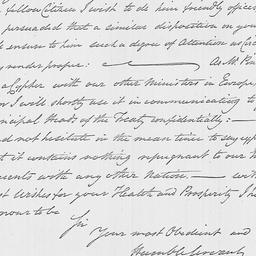 fellow Citizen I wish to do him friendly offices
persuaded that a similar disposition in you
ensure to him such a degree of Attention as Circ
render proper: — As Mr. Pin
a Cypher with our other Ministers in Europe
I will shortly use it in communicating to
ncipal Heads of the Treaty confidentially: —
d not hesitate in the mean time to say
t it contains nothing repugnant to our
ments with any other Nation. — with
st Wishes for your Health and Prosperity I h
onour to be
Sir
Your most Obedient and
Humble Servant